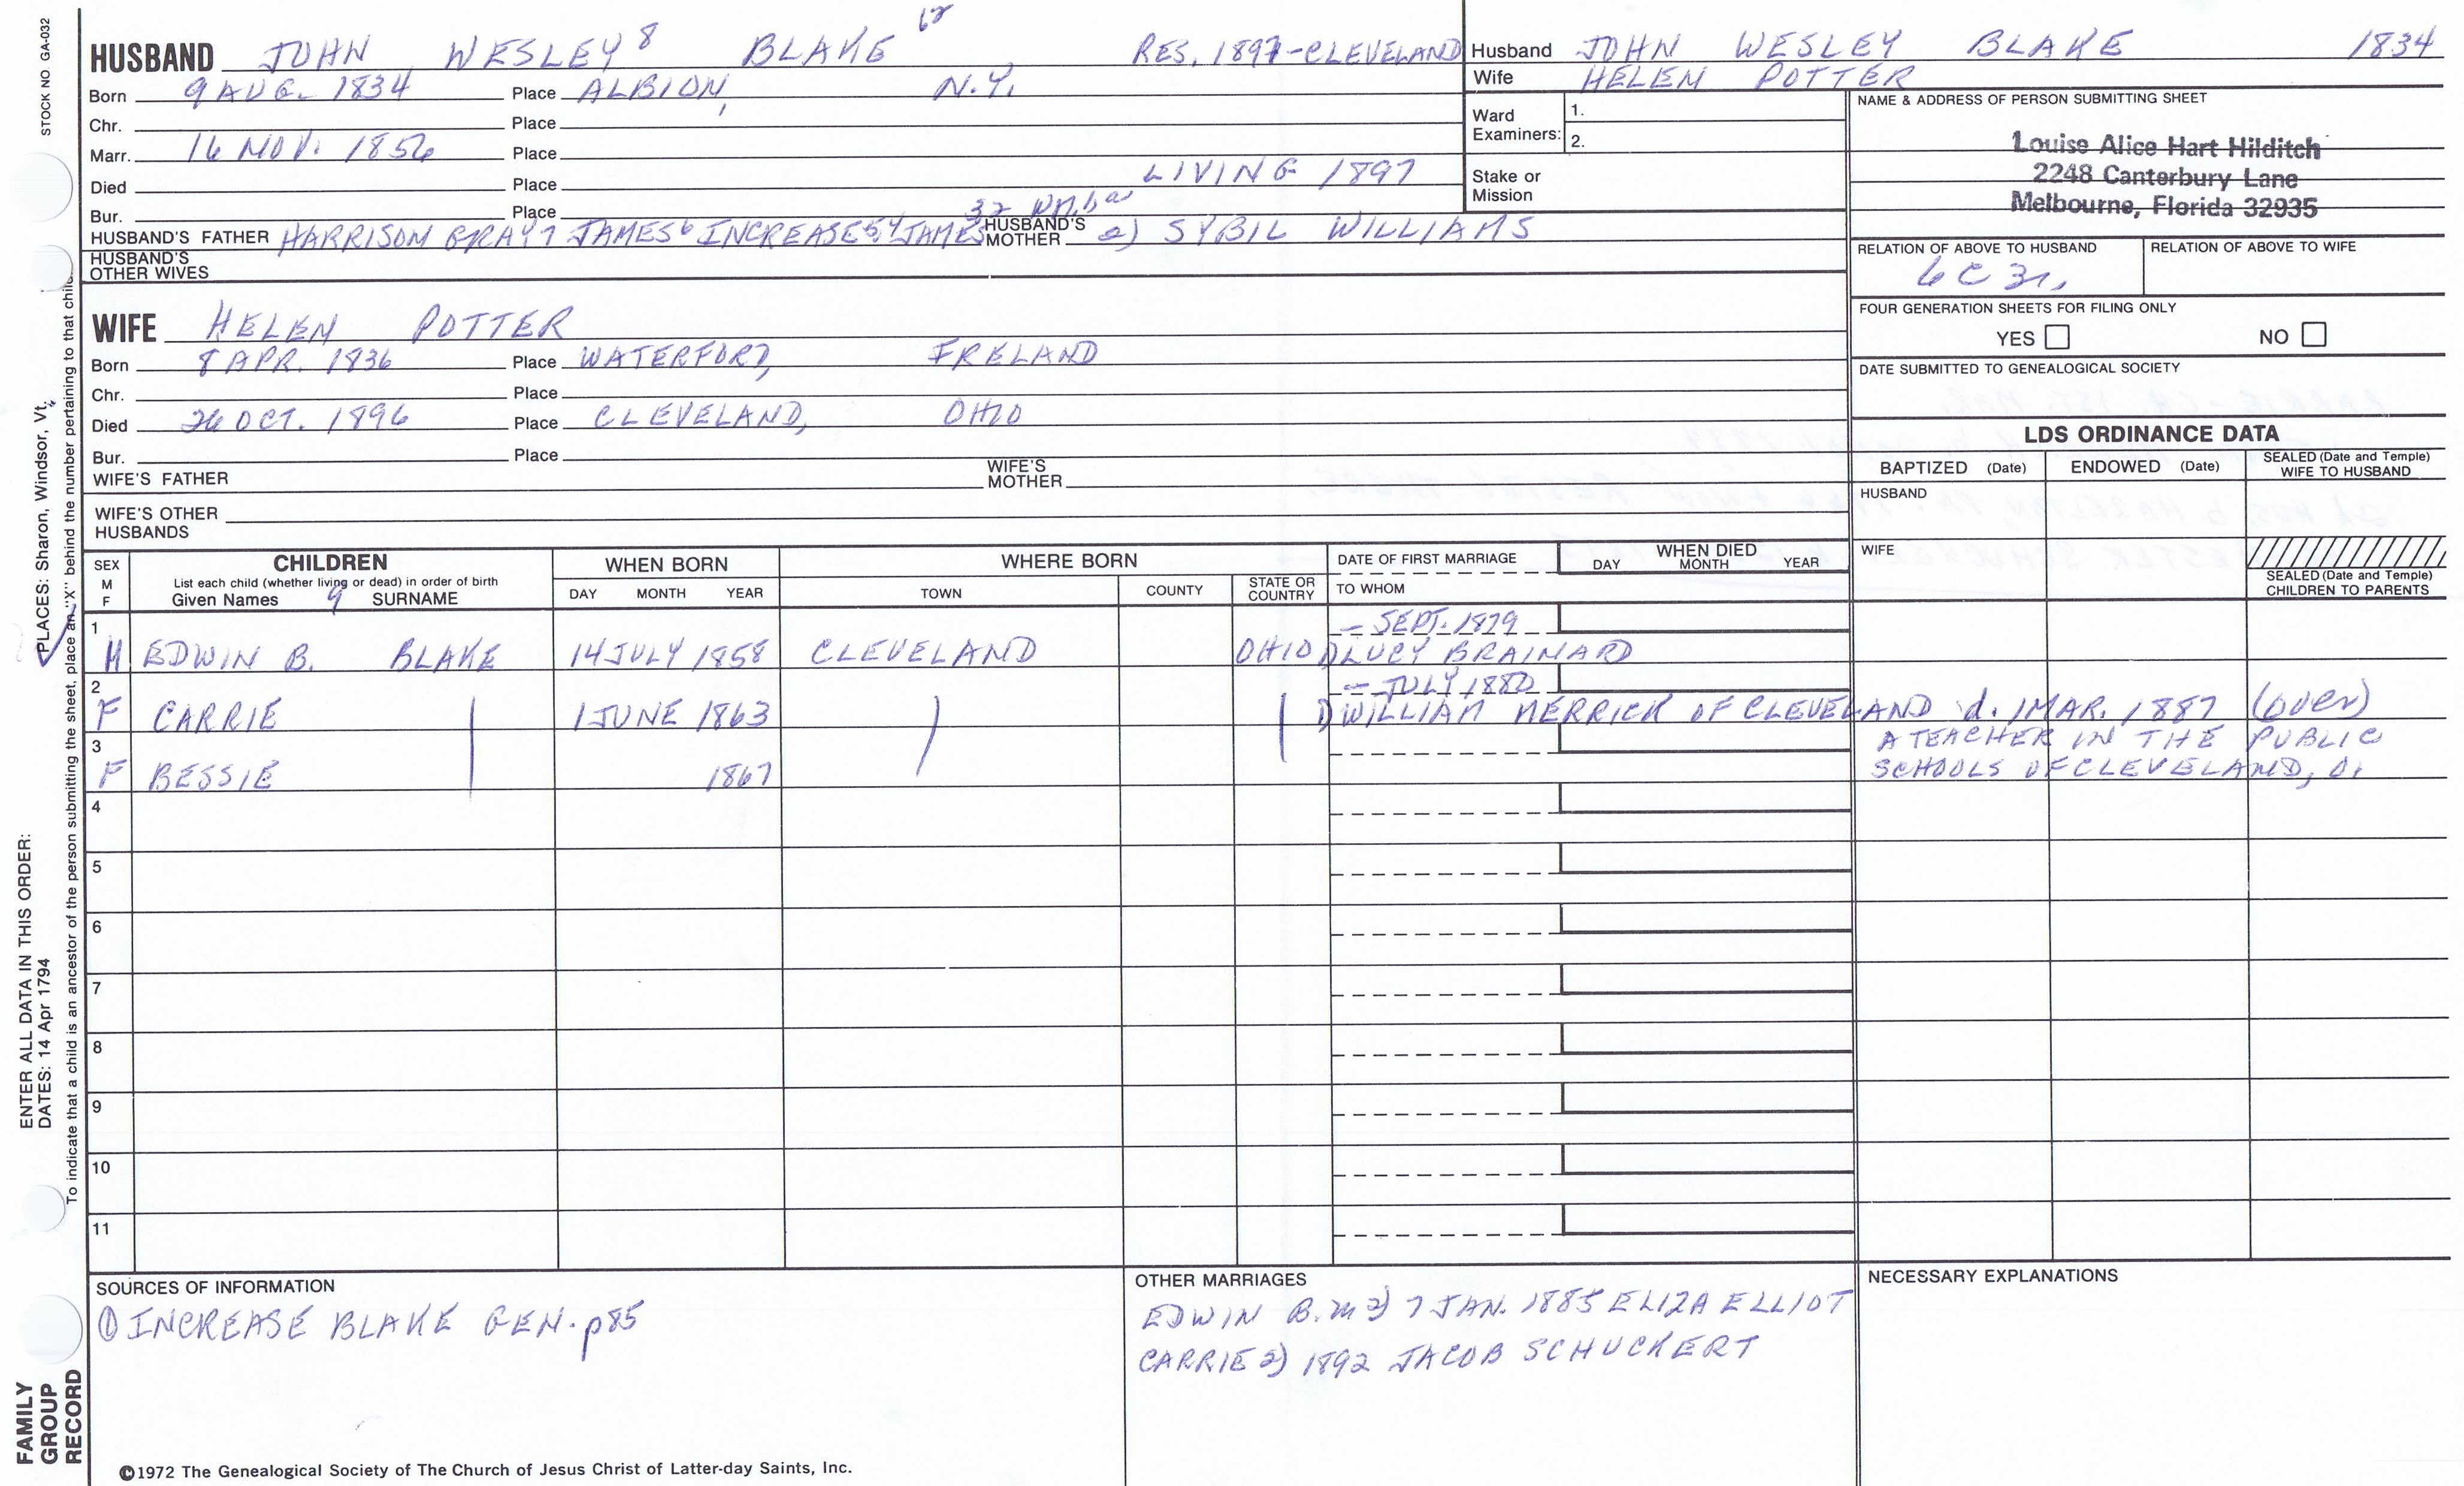 STOCK NO GA-032
HUSBAND JOHN WESLEY 8 BLAKE RES. 1897-CLEVELAND
Born 9 AUG. 1834 Place ALBION, N.Y.
Chr. Place
Marr. 16 NOV. 1856 Place
Died Place LIVING 1897
Bur. Place
HUSBAND'S FATHER HARRISON GRAY 7 JAMES 6 INCREASE 5,4 JAMES HUSBAND'S MOTHER 2) SYBIL WILLIAMS
HUSBAND'S OTHER WIVES
Husband JOHN WESLEY BLAKE 1834
Wife HELEN POTTER
Ward Examiners: 1.
2.
Stake or Mission
NAME & ADDRESS OF PERSON SUBMITTING SHEET
Louise Alice Hart Hilditch
2248 Canterbury Lane
Melbourne, Florida 32935
RELATION OF ABOVE TO HUSBAND RELATION OF ABOVE TO WIFE
6C 3r.
FOUR GENERATION SHEETS FOR FILING ONLY
YES NO
DATE SUBMITTED TO GENEALOGICAL SOCIETY
WIFE HELEN POTTER
Born 8 APR. 1836 Place WATERFORD, IRELAND
Chr. Place
Died 26 OCT. 1896 Place CLEVELAND, OHIO
Bur. Place
WIFE'S FATHER WIFE'S MOTHER
WIFE'S OTHER HUSBANDS
LDS ORDINANCE DATA
BAPTIZED (Date) ENDOWED (Date) SEALED (Date and Temple) WIFE TO HUSBAND
HUSBAND
WIFE
SEALED (Date and Temple) CHILDREN TO PARENTS
SEX M F CHILDREN WHEN BORN WHERE BORN DATE OF FIRST MARRIAGE WHEN DIED
List each child (whether living or dead) in order of birth
Given Names 9 SURNAME DAY MONTH YEAR TOWN COUNTY STATE OR COUNTRY TO WHOM DAY MONTH YEAR
1 - SEPT. 1879
M EDWIN B. BLAKE 14 JULY 1858 CLEVELAND OHIO 1) LUCY BRAINARD
2 - JULY 1880
F CARRIE 1 JUNE 1863 1) WILLIAM MERRICK OF CLEVELAND d. 1 MAR. 1887 (over)
3 A TEACHER IN THE PUBLIC
F BESSIE 1867 SCHOOLS OF CLEVELAND, O.
4
5
6
7
8
9
10
11
SOURCES OF INFORMATION
① INCREASE BLAKE GEN. p85
OTHER MARRIAGES
EDWIN B. m 2) 7 JAN. 1885 ELIZA ELLIOT
CARRIE 2) 1892 JACOB SCHUCKERT
NECESSARY EXPLANATIONS
©1972 The Genealogical Society of The Church of Jesus Christ of Latter-day Saints, Inc.
FAMILY
GROUP
RECORD
ENTER ALL DATA IN THIS ORDER:
DATES: 14 Apr 1794 PLACES: Sharon, Windsor, Vt.
To indicate that a child is an ancestor of the person submitting the sheet, place an "X" behind the number pertaining to that child.